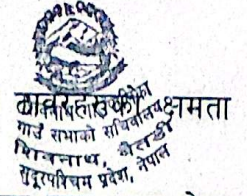 क्षमता
गाउँ सभाको सचिवालय
शिवनाथ, बैतडी
सुदूरपश्चिम प्रदेश, नेपाल